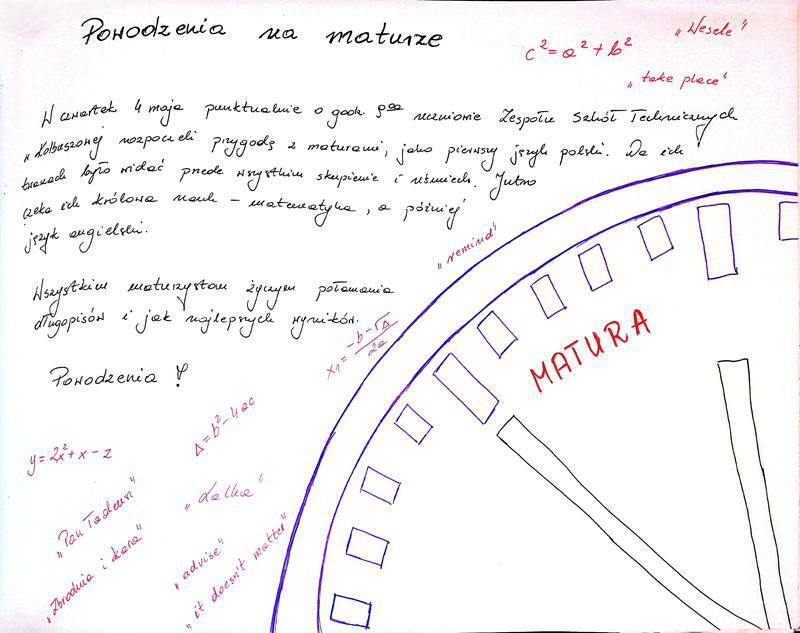 Powodzenia na maturze
c² = a² + b²
„Wesele”
„take place”
W czwartek 4 maja punktualnie o godz. 9⁰⁰ uczniowie Zespołu Szkół Technicznych
w Kolbuszowej rozpoczęli przygodę z maturami, jako pierwszy język polski. Na ich
twarzach było widać przede wszystkim skupienie i uśmiech. Jutro
czeka ich królowa nauk – matematyka, a później
język angielski.
„remind”
Wszystkim maturzystom życzymy połamania
długopisów i jak najlepszych wyników.
x₁ = (-b-√Δ)/2a
MATURA
Powodzenia !
Δ = b² - 4ac
y = 2x² + x - 2
„Pan Tadeusz”
„Lalka”
„Zbrodnia i kara”
„advise”
„it doesn't matter”